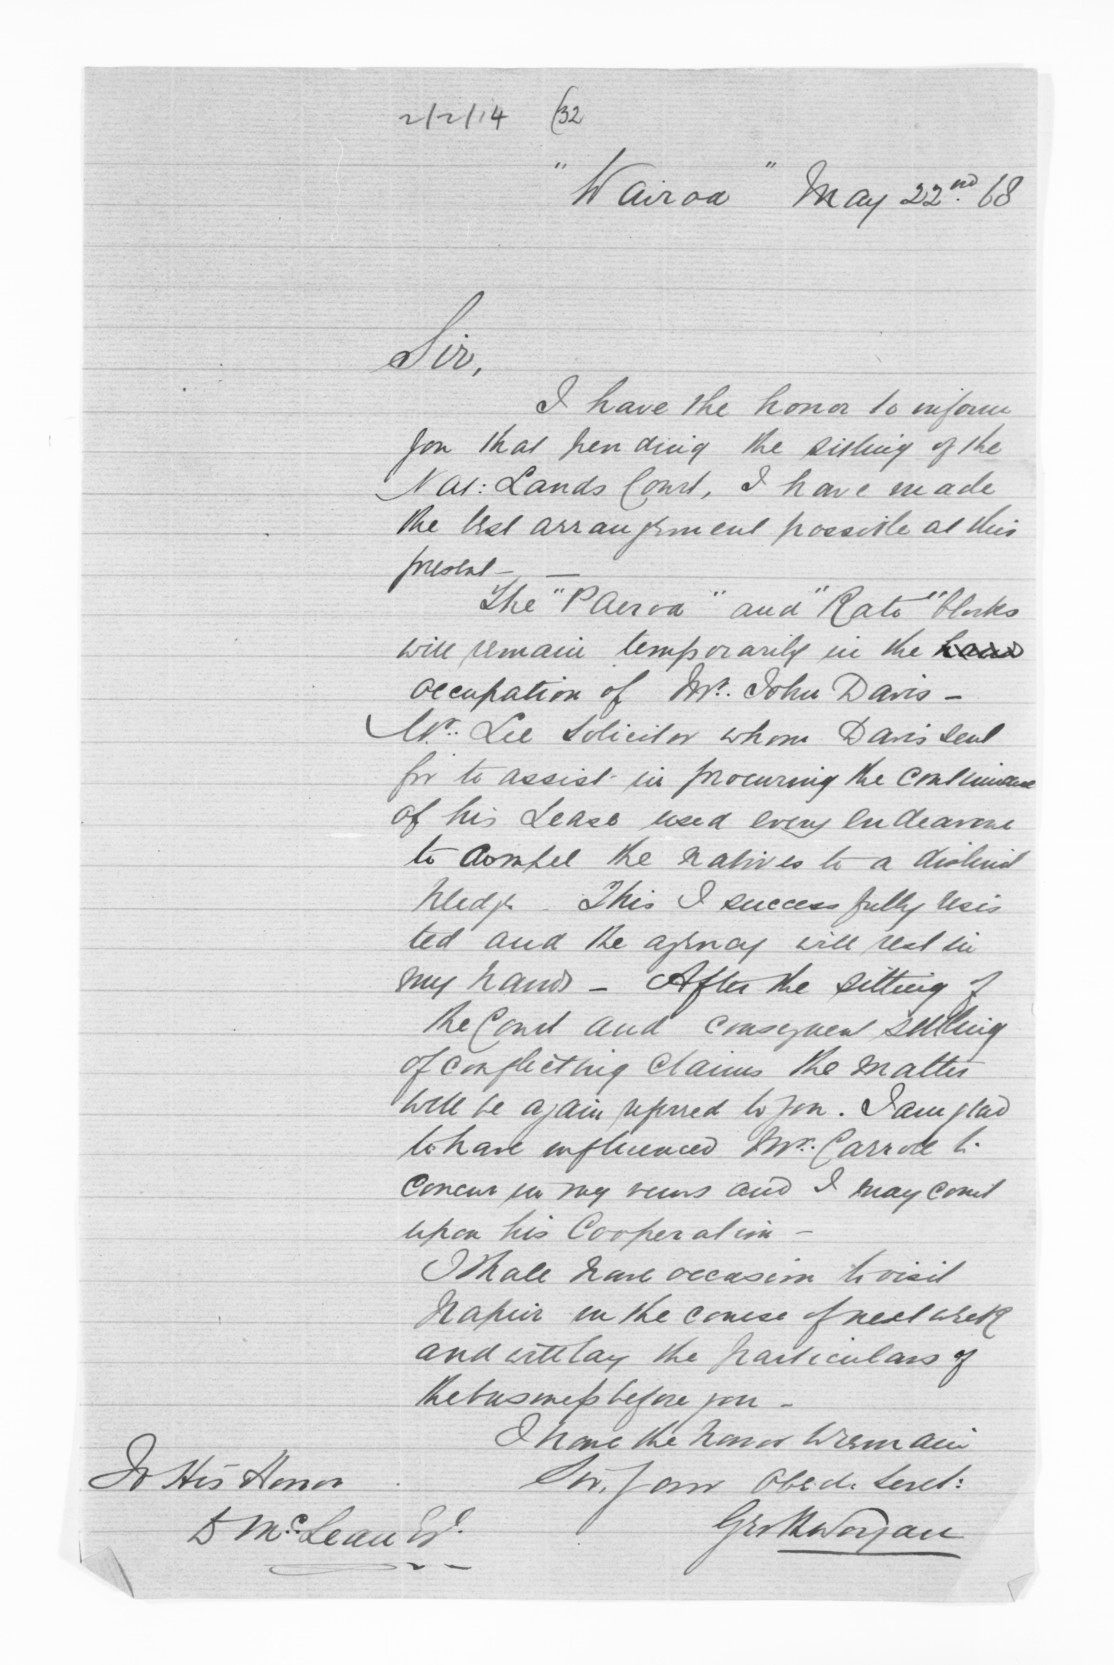 2/2/14 (32
" Wairoa " May 22nd. 68
Sir,
I have the honor to inform
you that pending the sitting of the
Nat: Lands Court, I have made
the best arrangement possible at this
present — —
The "Paeroa" and "Rato" blocks
will remain temporarily in the
occupation of Mr. John Davis —
Mr. Lee Solicitor whom Davis sent
for to assist in procuring the continuance
of his Lease used every endeavour
to compel the natives to a distinct
pledge. This I successfully resis
ted and the agency will rest in
my hands — After the sitting of
the Court and consequent settling
of conflicting claims the matter
will be again referred to you. I am glad
to have influenced Mr. Carroll to
concur in my views and I may count
upon his Cooperation —
I shall have occasion to visit
Napier in the course of next week
and will lay the particulars of
the business before you —
I have the honor to remain
Sir, Your Obedt. Servt:
Geo K Worgan
To His Honor
D McLean Esq.